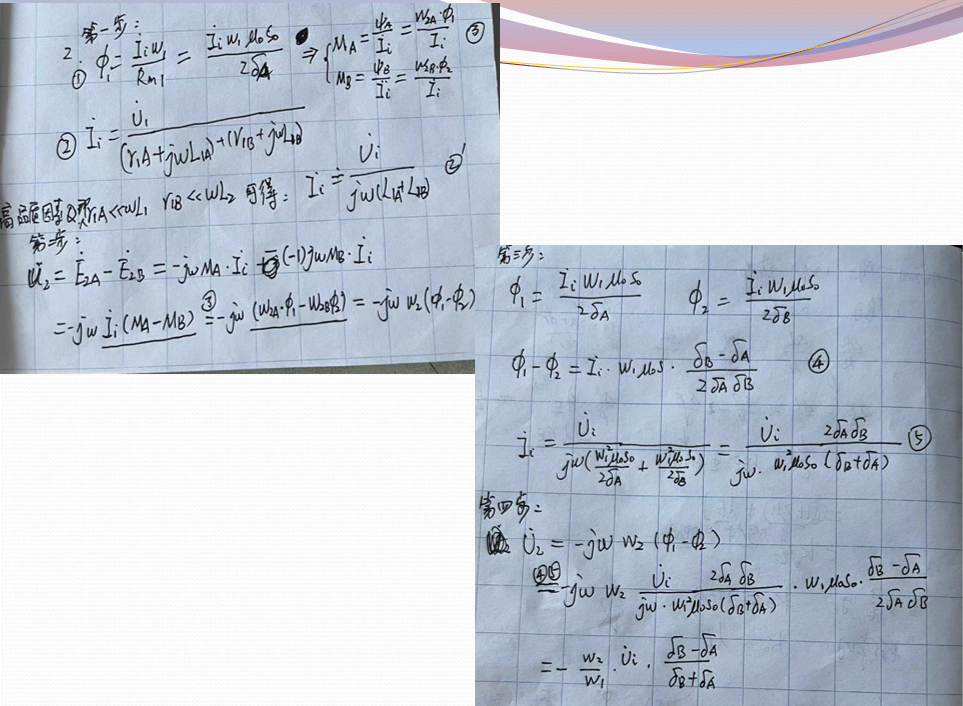 第一步:
2. ① ϕ₁ = IᵢW₁/Rm₁ = IᵢW₁μ₀S₀/2δA ⇒ { MA = ψA/İᵢ = W₂A·ϕ₁/Iᵢ ③
MB = ψB/İᵢ = W₂B·ϕ₂/Iᵢ
② İᵢ = U̇ᵢ/((r₁A+jωL₁A)+(r₁B+jωL₁B))
高品质因素Q r₁A<<ωL₁ r₁B<<ωL₂ 可得: İᵢ = U̇ᵢ/(jω(L₁A+L₁B)) ②′
第二步:
U̇₂ = Ė₂A - Ė₂B = -jωMA·İᵢ - (-1)jωMB·İᵢ
= -jω İᵢ(MA-MB) ③= -jω (W₂A·ϕ₁-W₂Bϕ₂) = -jω W₂(ϕ₁-ϕ₂)
第三步:
ϕ₁ = İᵢW₁μ₀S₀/2δA ϕ₂ = İᵢW₁μ₀S₀/2δB
ϕ₁-ϕ₂ = İᵢ·W₁μ₀S·(δB-δA)/(2δAδB) ④
İᵢ = U̇ᵢ/(jω(W₁²μ₀S₀/2δA + W₁²μ₀S₀/2δB)) = U̇ᵢ 2δAδB/(jω·W₁²μ₀S₀(δB+δA)) ⑤
第四步:
U̇₂ = -jω W₂(ϕ₁-ϕ₂)
④⑤= -jω W₂ U̇ᵢ 2δAδB/(jω·W₁²μ₀S₀(δB+δA)) · W₁μ₀S₀·(δB-δA)/(2δAδB)
= - W₂/W₁·U̇ᵢ·(δB-δA)/(δB+δA)